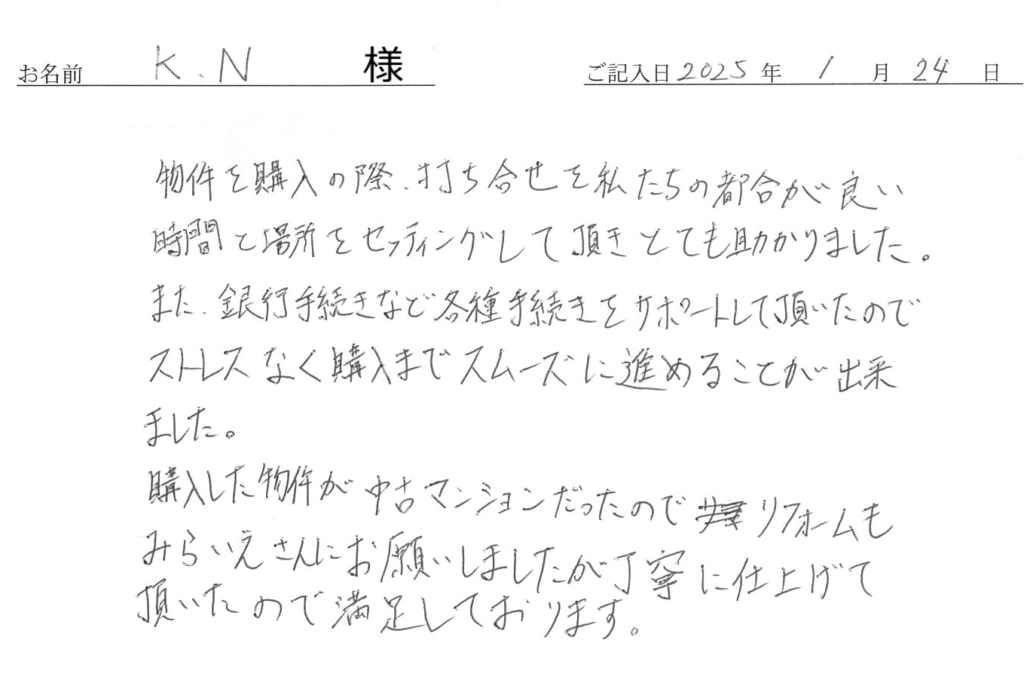 お名前 K.N 様 ご記入日 2025 年 1 月 24 日
物件を購入の際、打ち合せを私たちの都合が良い
時間と場所をセッティングして頂きとても助かりました。
また、銀行手続きなど各種手続きをサポートして頂いたので
ストレスなく購入までスムーズに進めることが出来
ました。
購入した物件が中古マンションだったのでリフォームも
みらいえさんにお願いしましたが丁寧に仕上げて
頂いたので満足しております。